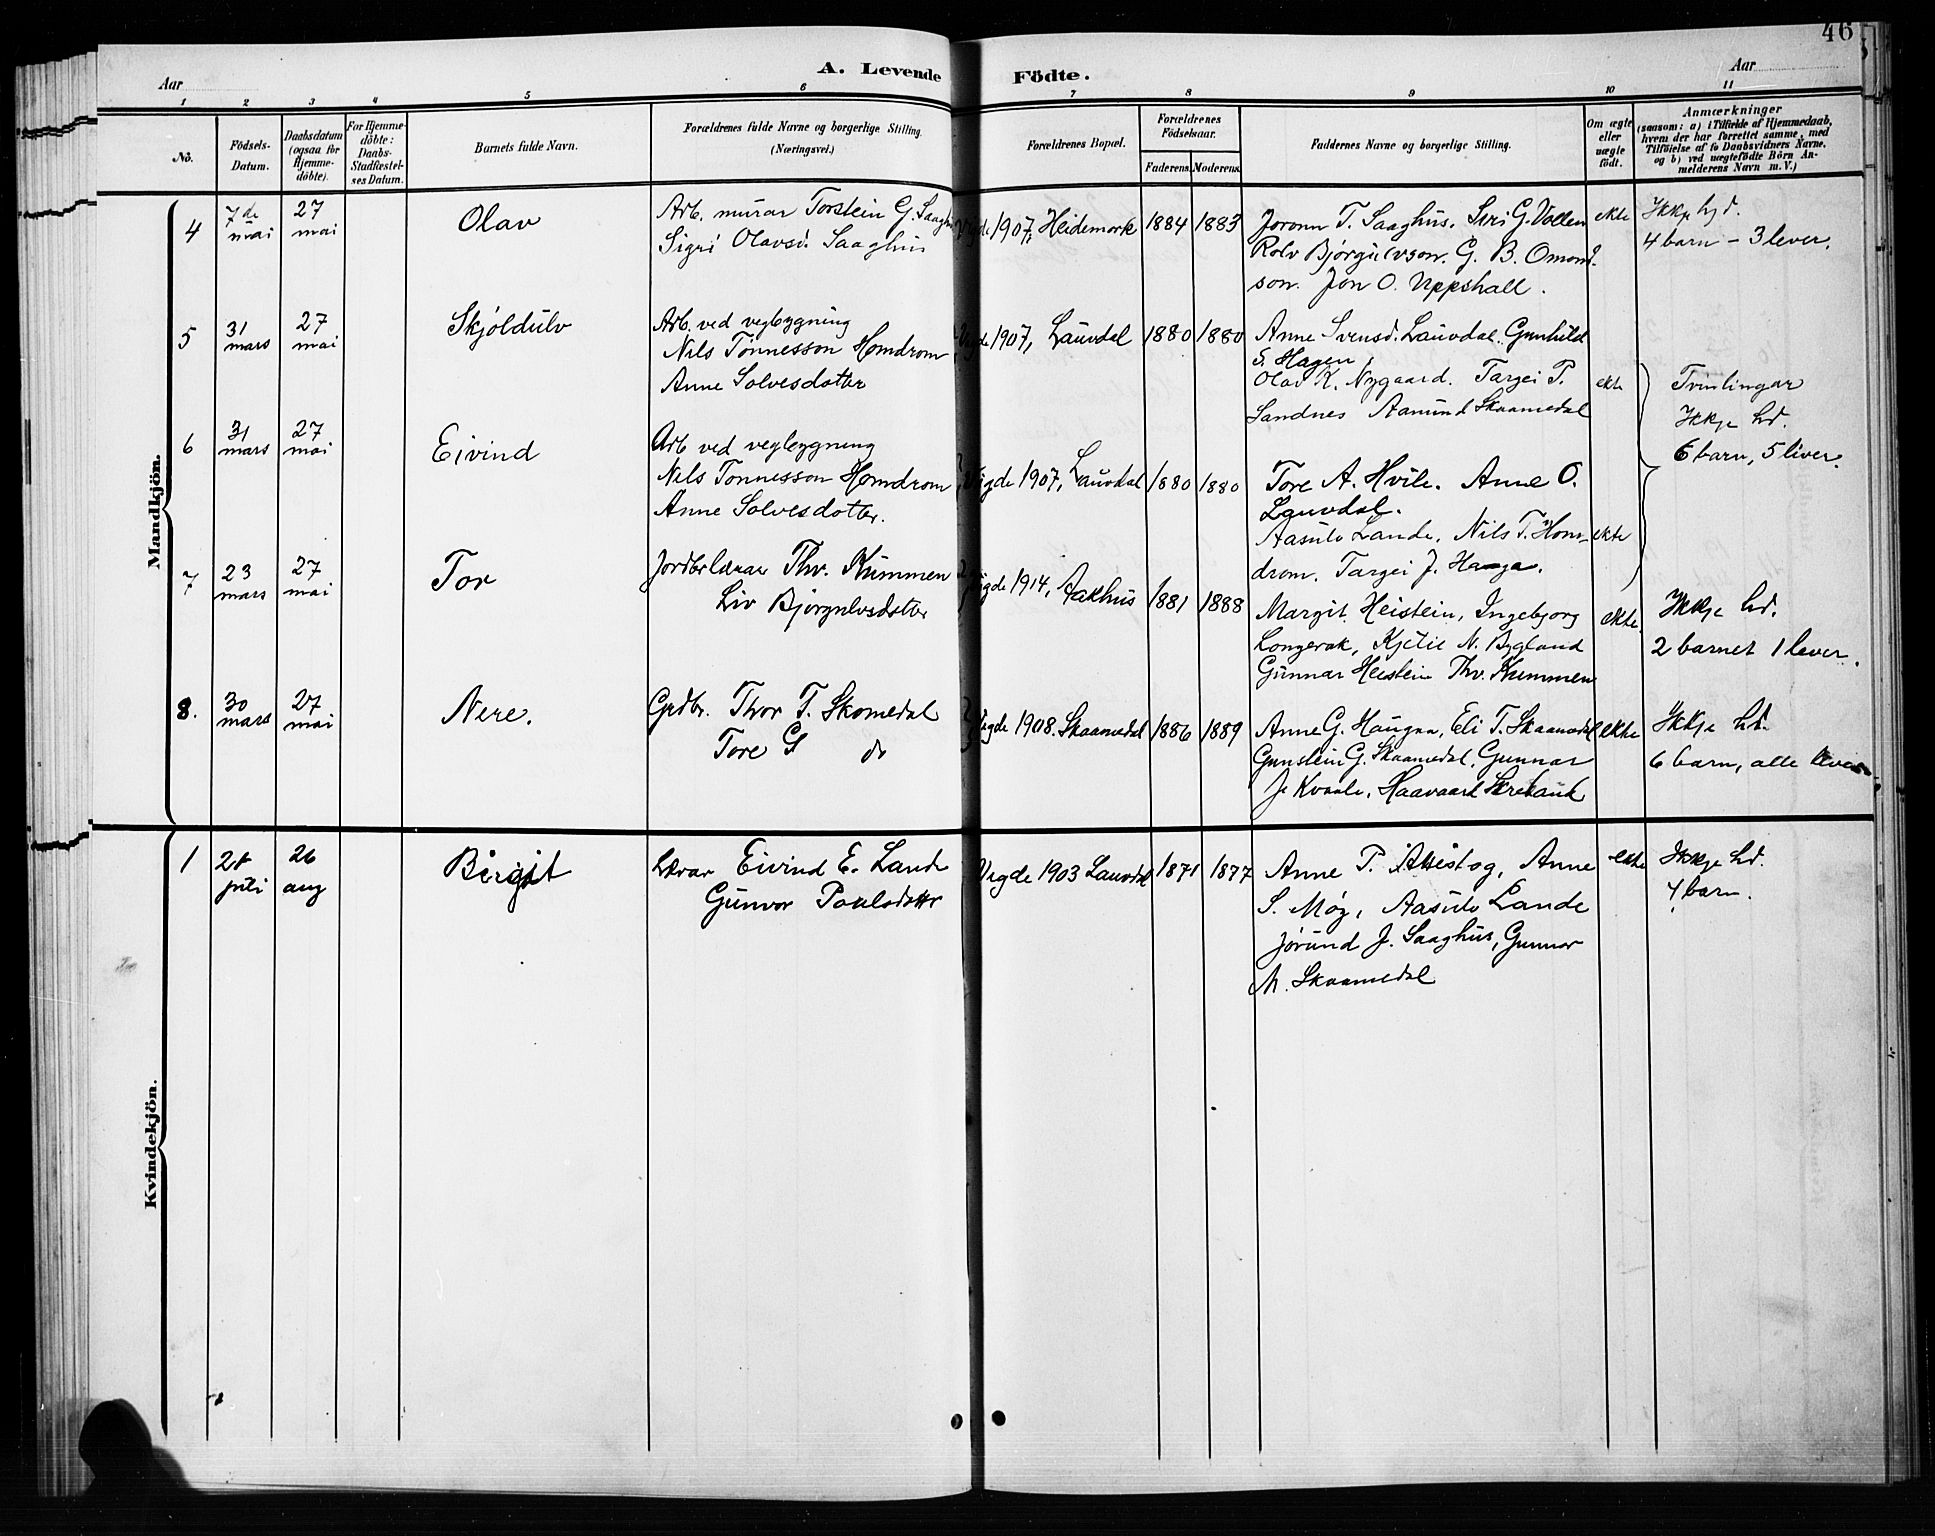 46
A. Levende Födte.
Aar
Aar
1 2 3 4 5 6 7 8 9 10 11
Nô.
Födsels-Datum.
Daabsdatum (ogsaa for Hjemme-döbte).
For Hjemme-döbte: Daabs-Stadfæstel-ses Datum.
Barnets fulde Navn.
Forældrenes fulde Navne og borgerlige Stilling. (Næringsvei.)
Forældrenes Bopæl.
Forældrenes Födselsaar.
Faderens. Moderens.
Faddernes Navne og borgerlige Stilling.
Om ægte eller uægte födt.
Anmærkninger
(saasom: a) i Tilfælde af Hjemmedaab,
hvem der har forrettet samme, med
Tilföielse af to Daabsvidners Navne,
og b) ved uægtefödte Börn An-
melderens Navn m. V.)
Mandkjön.
4
7de mai
27 mai
Olav
Arb. murar Torstein G. Saaghus
Sigri Olavsd. Saaghus
Vigde 1907, Heidemork
1884 1883
Joronn T. Saaghus. Siri G. Vollen
Rolv Bjørgulvson. G. B. Omond-
son. Jon O. Uppshall.
ekte
Ikkje hd.
4 barn - 3 lever.
5
31 mars
27 mai
Skjoldulv
Arb. ved vegbygning
Nils Tønnesson Homdrom
Anne Solvesdotter
Vigde 1907, Lauvdal
1880 1880
Anne Svensd. Lauvdal. Gunhild
S. Hagen,
Olav K. Nygaard. Targei T.
Sandnes Aamund Skaamedal
ekte
Tvinlingar
Ikkje hd.
6 barn, 5 liver.
6
31 mars
27 mai
Eivind
Arb ved vegbygning
Nils Tonnesson Homdrom
Anne Solvesdotter.
Vigde 1907, Lauvdal
1880 1880
Tore A. Hvile. Anne O.
Lauvdal.
Aasulv Lande, Nils T. Hom-
drom. Targei J. Hauga.
ekte
7
23 mars
27 mai
Tor
Jordbr lærar Thv. Kummen
Liv Bjorgulvsdotter
Vigde 1914, Aakhus
1881 1888
Margit Heistein, Ingebjorg
Longerak, Kjetil N. Bygland
Gunnar Heistein Thv. Kummen
ekte.
Ikkje hd.
2 barnet 1 lever.
8.
30 mars
27 mai
Nere.
Grdbr. Thor T. Skomedal
Tore G do
Vigde 1908. Skaamedal
1886 1889
Anne G. Haugaa, Eli T. Skaamedal
Gunstein G. Skaamedal, Gunnar
J. Kvaale, Haavaard Skrebauk
ekte
Ikkje hd.
6 barn, alle lever
Kvindekjön.
1
28 juli
26 aug
Birgit
Lærar Eivind E. Lande
Gunvor Paalsdottr
Vigde 1903 Lauvdal
1871 1877
Anne P. Austog, Anne
S. Moy, Aasulv Lande
Jorund J. Saaghus, Gunnar
M. Skaamedal
ekte
Ikkje hd.
4 barn.